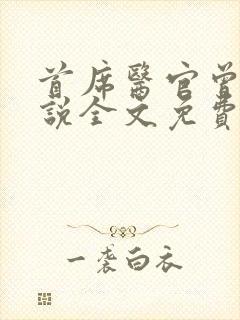 首席醫官曾
説全文免費
一袭白衣